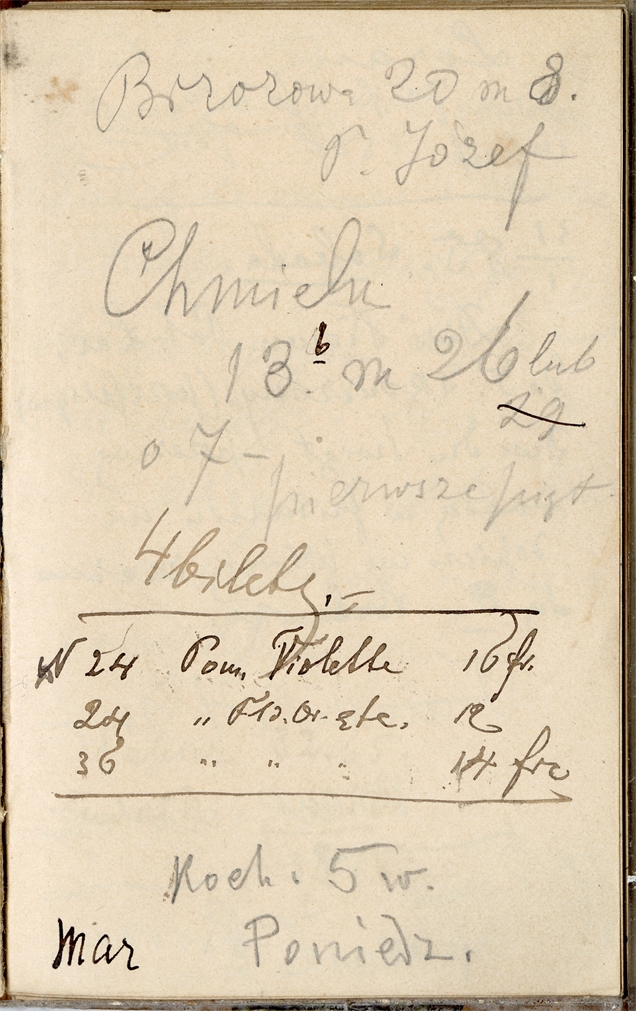 Brzozowa 20 m 8.
P. Józef
Chmieln
13 b m 26 lub
29
o 7 - pierwsze pięt.
4 bilety, -
N 24 Pom. Violette 16 fr.
24 " 12
36 " " " 14 frc
Koch. 5 w.
Mar Poniedz.